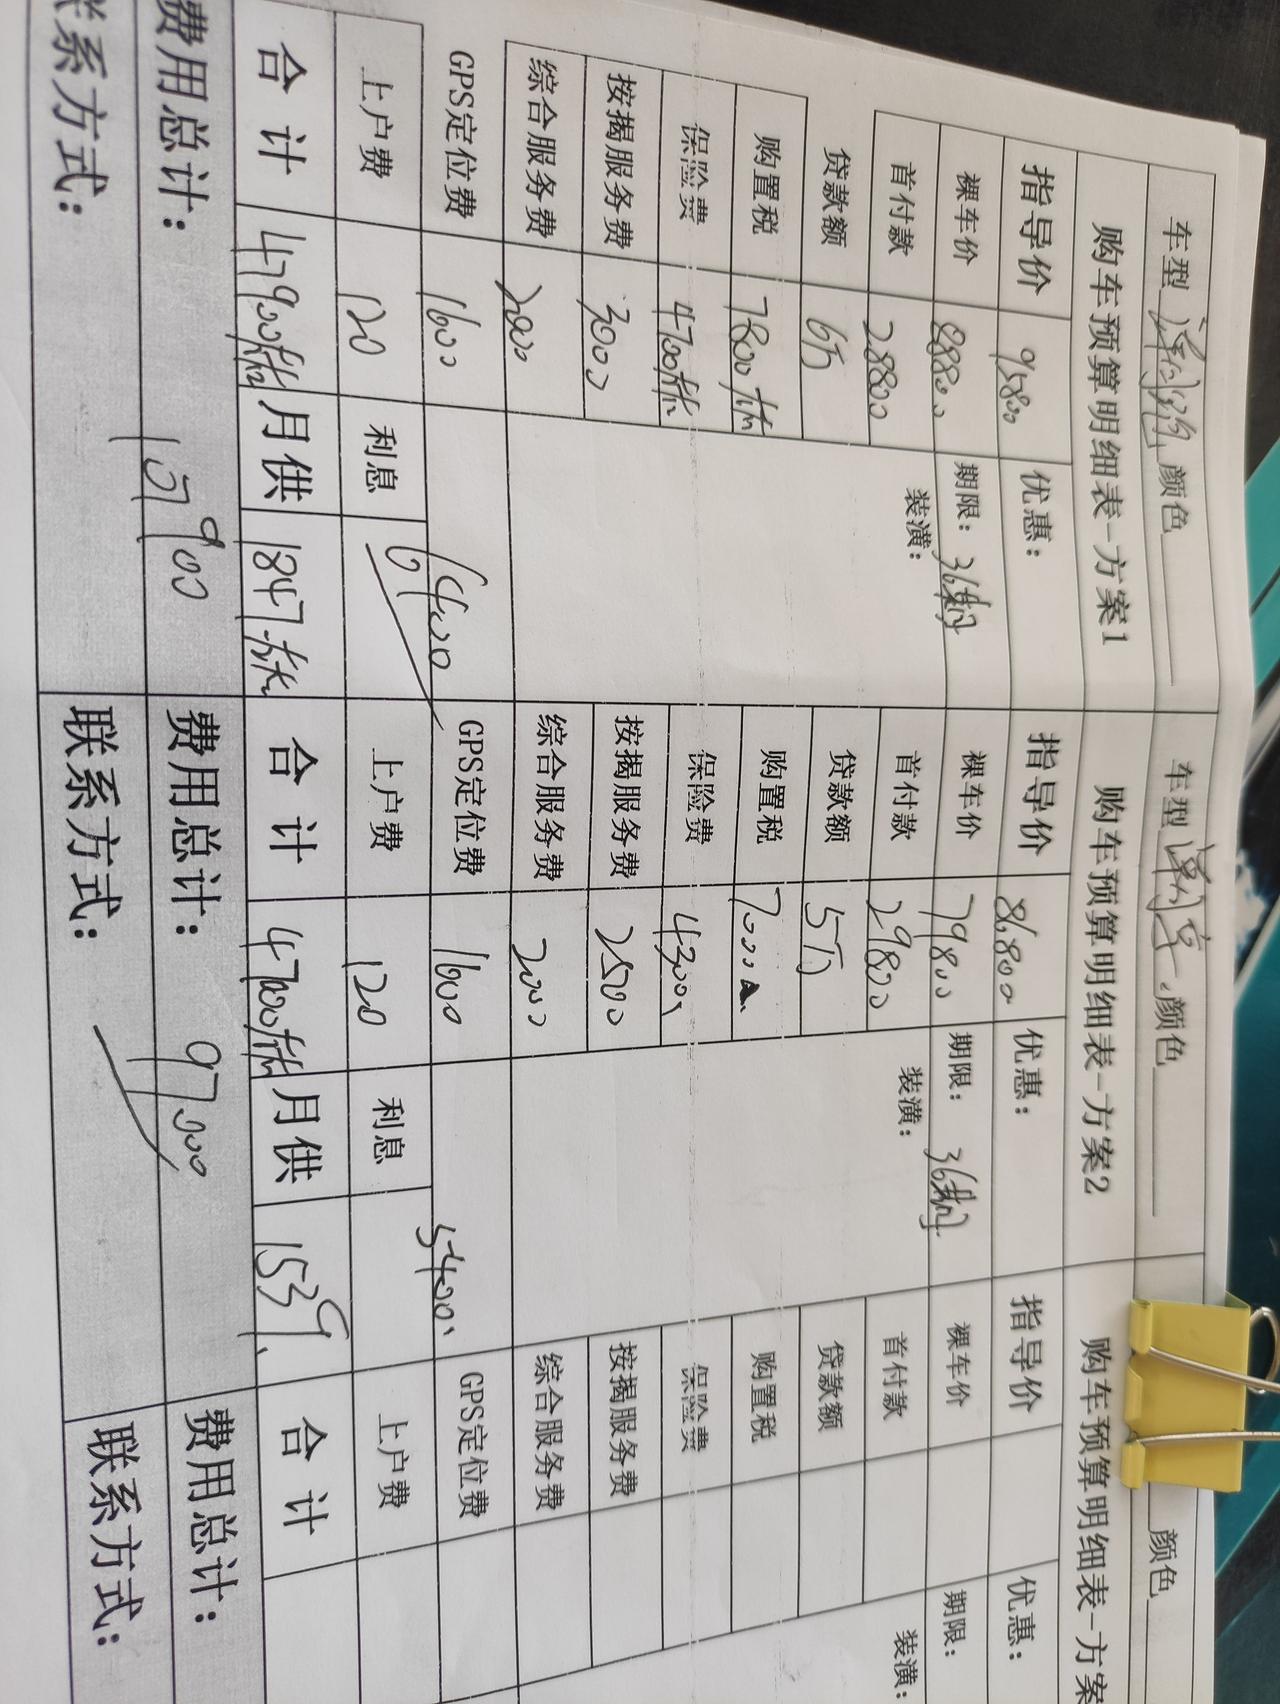 车型 颜色
购车预算明细表-方案1
指导价 95800 优惠：
裸车价 88800 期限： 36期
首付款 28800 装潢：
贷款额 6万
购置税 7800左右
保险费 4700左右
按揭服务费 3000
综合服务费 2000
GPS定位费 1600
上户费 120 利息 6400
合计 47900左右 月供 1847左右
费用总计：
联系方式：
车型 颜色
购车预算明细表-方案2
指导价 86800 优惠：
裸车价 79800 期限： 36期
首付款 29800 装潢：
贷款额 5万
购置税 7000
保险费 4300
按揭服务费 2500
综合服务费 2000
GPS定位费 1600
上户费 120 利息 5400
合计 4700左右 月供 1539
费用总计： 97000
联系方式：
颜色
购车预算明细表-方案
指导价 优惠：
裸车价 期限：
首付款 装潢：
贷款额
购置税
保险费
按揭服务费
综合服务费
GPS定位费
上户费
合计
费用总计：
联系方式：